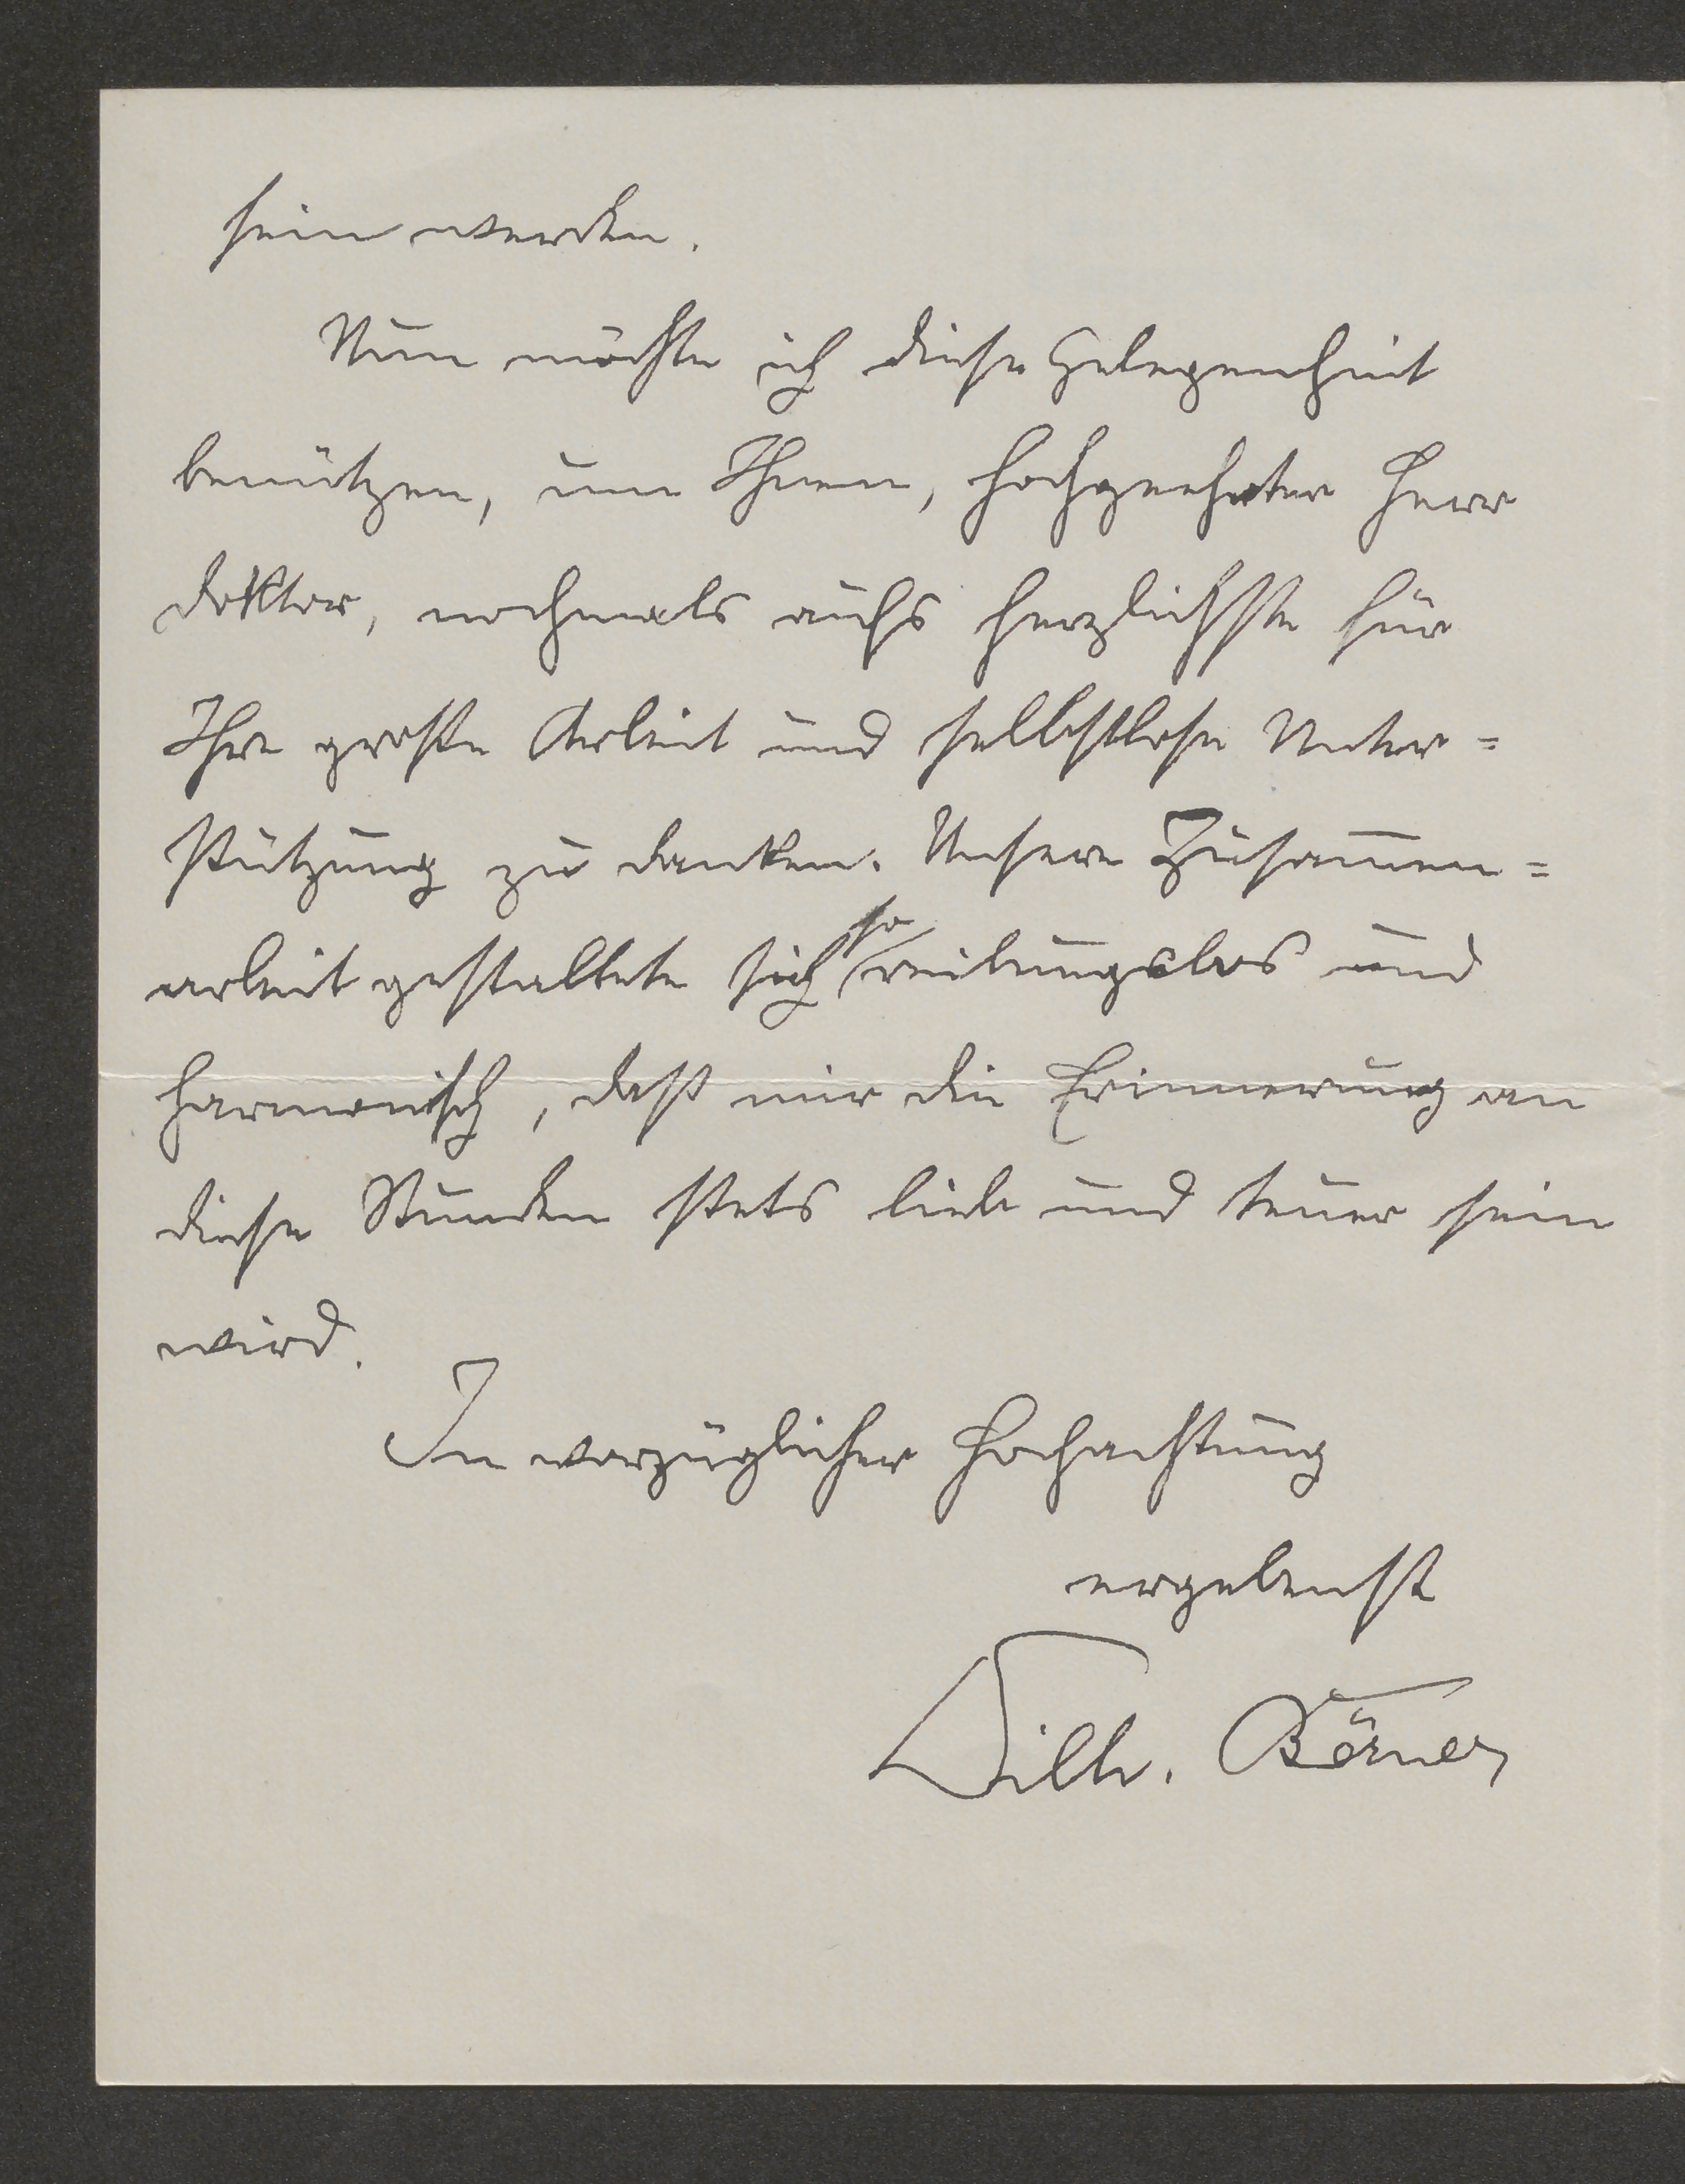 sein werden.
Nun möchte ich diese Gelegenheit
benützen, um Ihnen, hochgeehrter Herr
Doktor, nochmals aufs herzlichste für
Ihre große Arbeit und selbstlose Unter=
stützung zu danken. Unsere Zusam̅en=
arbeit gestaltete sich so reibungslos und
harmonisch, daß mir die Erinnerung an
diese Stunden stets lieb und teuer sein
wird.
In vorzüglicher Hochachtung
ergebenst
Wilh. Börner